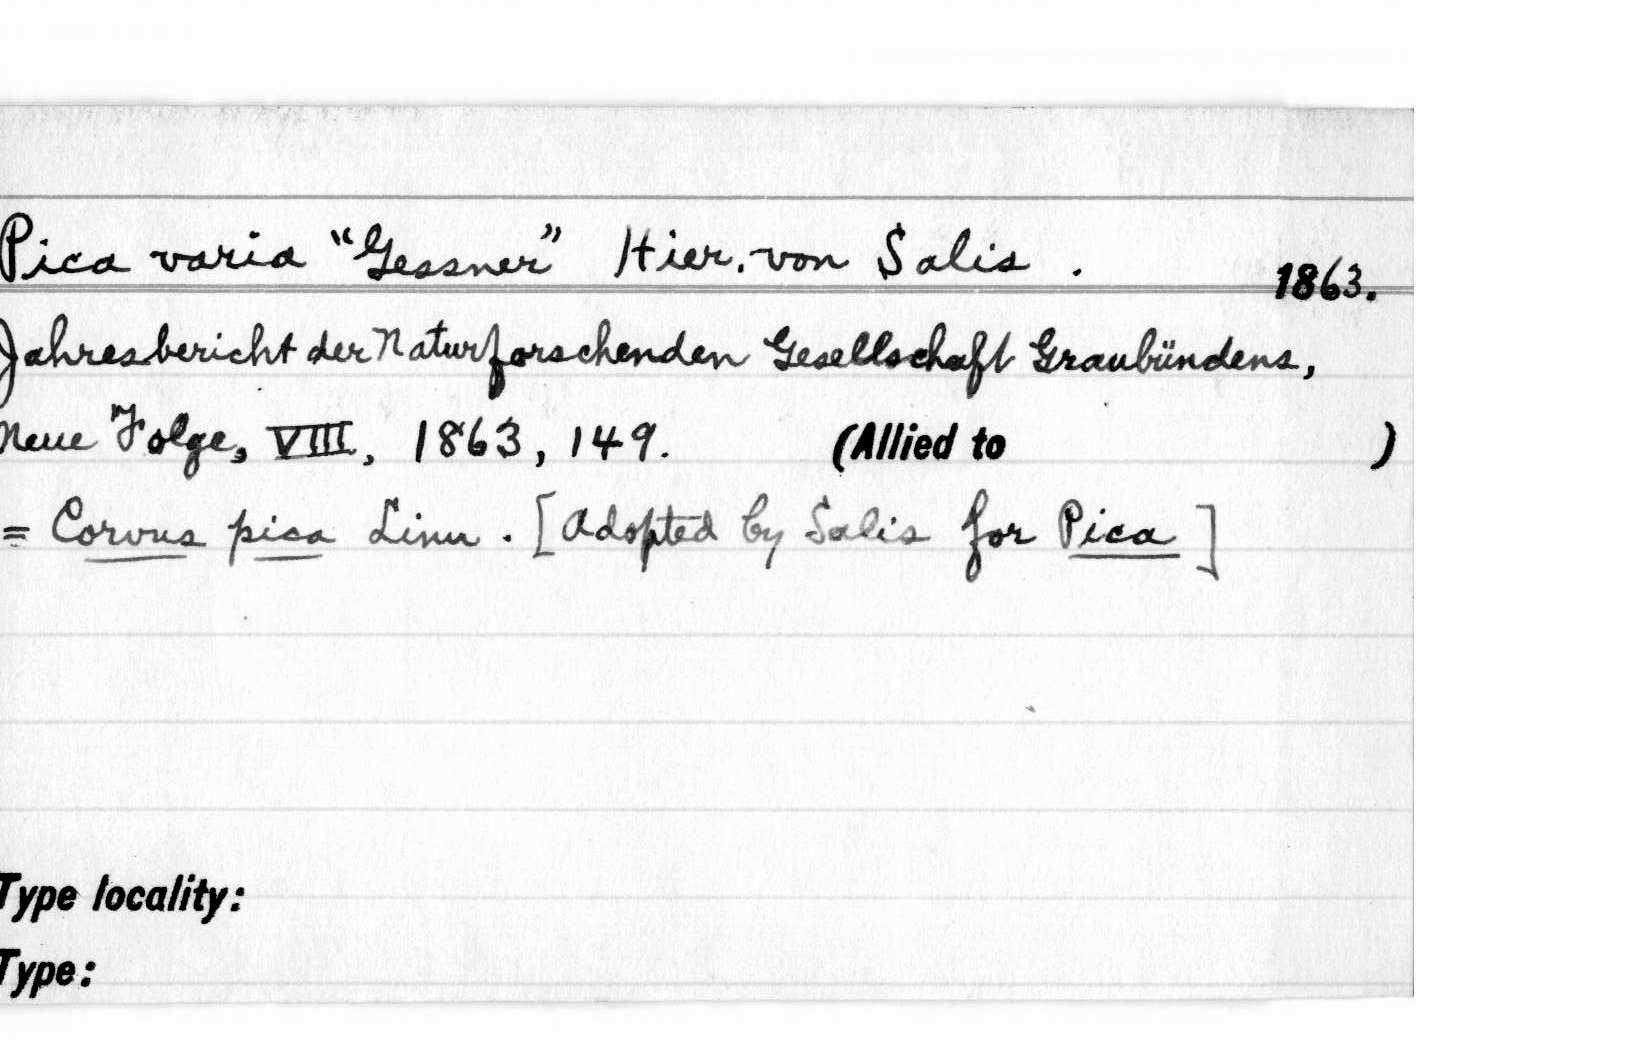 Pica varia "Gessner" Hier. von Salis. 1863.
Jahresbericht der Naturforschenden Gesellschaft Graubündens,
Neue Folge, VIII, 1863, 149. (Allied to )
= Corvus pica Linn. [Adopted by Salis for Pica]
Type locality:
Type: